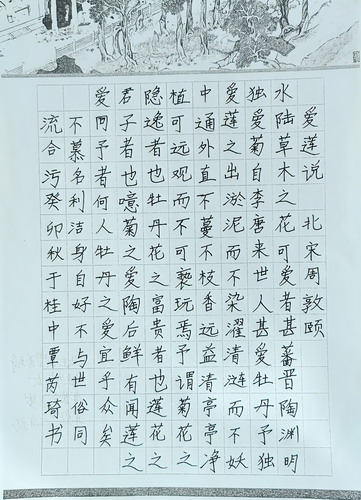 爱莲说 北宋周敦颐
水陆草木之花可爱者甚蕃晋陶渊明
独爱菊自李唐来世人甚爱牡丹予独
爱莲之出淤泥而不染濯清涟而不妖
中通外直不蔓不枝香远益清亭亭净
植可远观而不可亵玩焉予谓菊花之
隐逸者也牡丹花之富贵者也莲花之
君子者也噫菊之爱陶后鲜有闻莲之
爱同予者何人牡丹之爱宜乎众矣
不慕名利洁身自好不与世俗同
流合污癸卯秋于桂中覃芮琦书